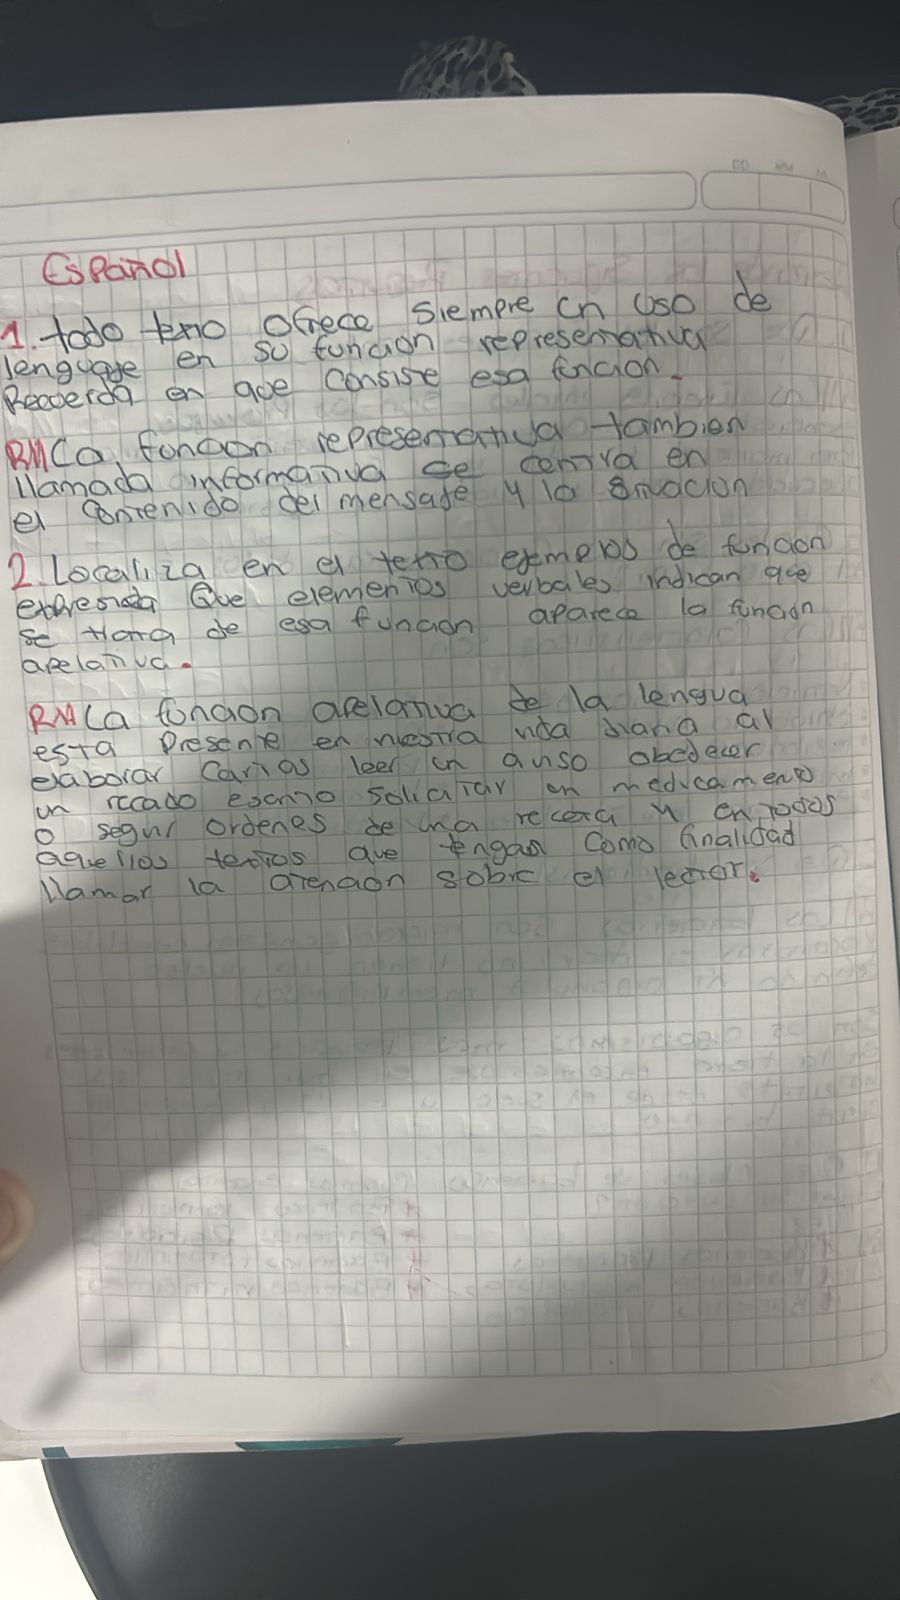 Español
1. todo texto ofrece siempre un uso de
lenguaje en su funcion representativa
Recuerda en que consiste esa funcion.
RM La funcion representativa tambien
llamada informativa se centra en
el contenido del mensaje y la situacion
2. Localiza en el texto ejemplos de funcion
expresiva Que elementos verbales indican que
se trata de esa funcion aparece la funcion
apelativa.
RM La funcion apelativa de la lengua
esta presente en nuestra vida diaria al
elaborar cartas leer un aviso obedecer
un recado escrito solicitar un medicamento
o seguir ordenes de una receta y en todos
aquellos textos que tengan como finalidad
llamar la atencion sobre el lector.